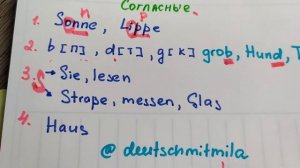 Согласные
n p
1. Sonne, Lippe
2. b [п], d [т], g [к] grob, Hund, T
3. S → Sie, lesen
↘ Strape, messen, Glas
4. Haus
@ deutschmitmila